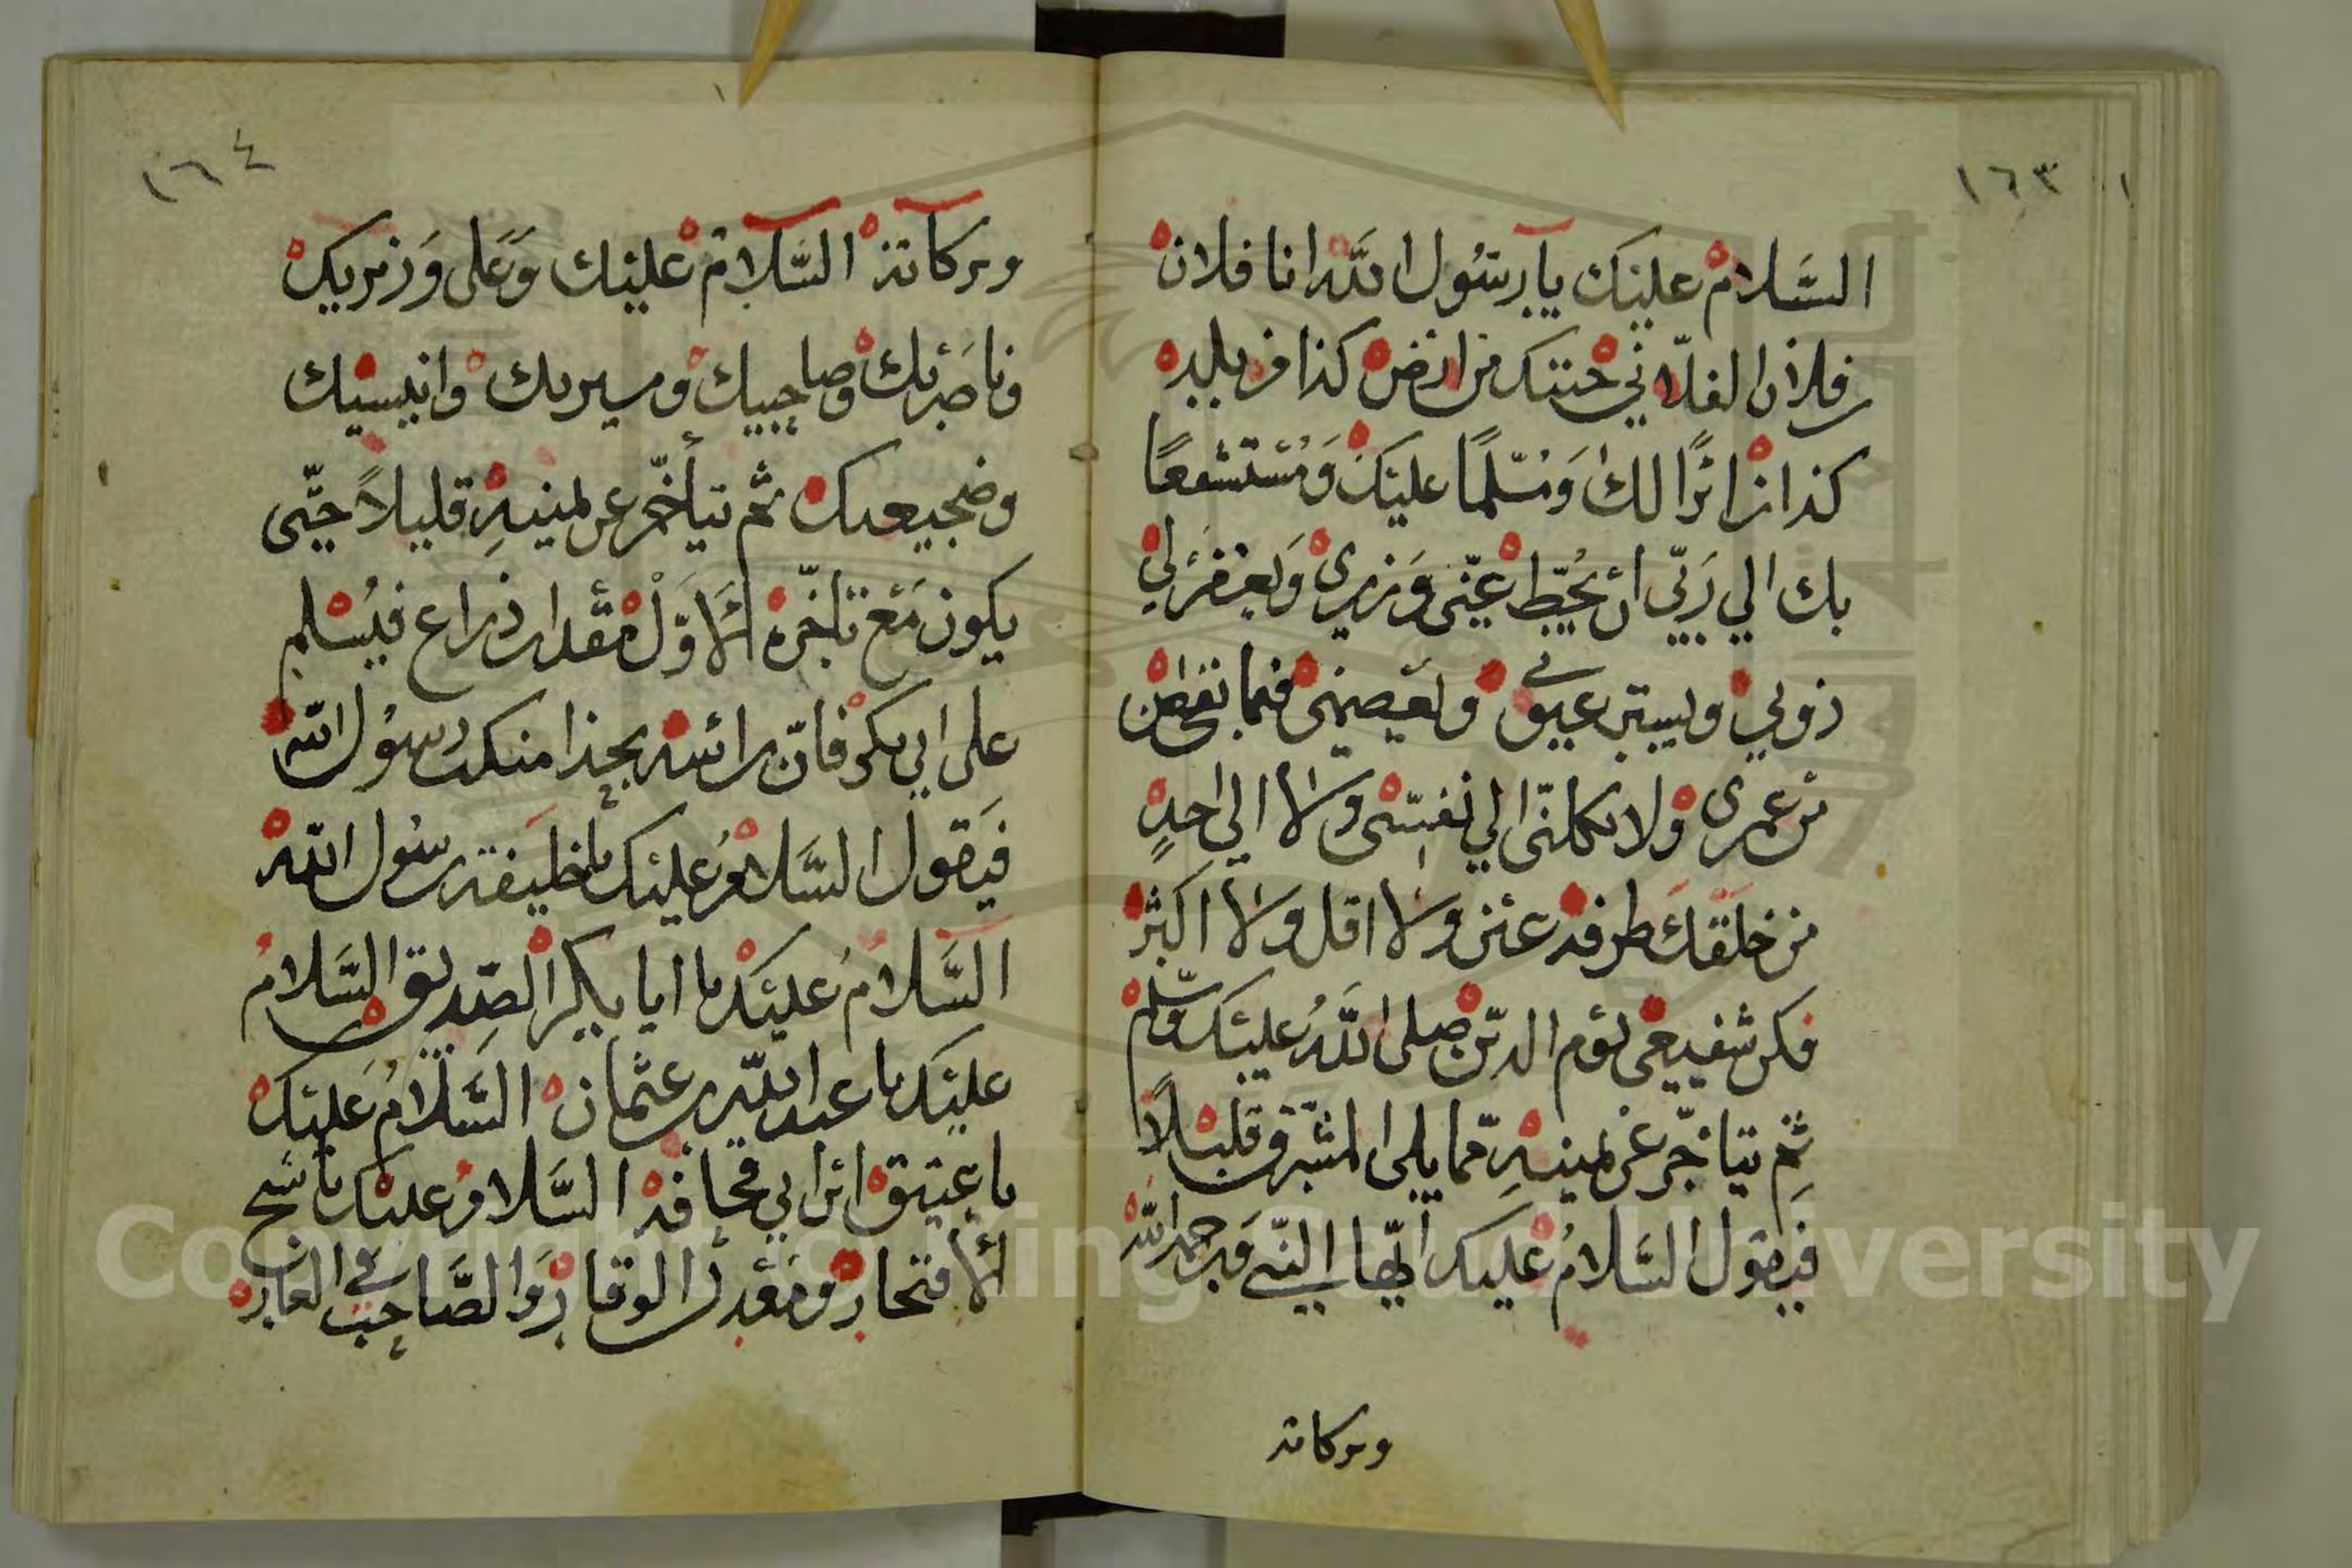 ١٦٣
السَّلام عليك يا رسُول الله انا فلان
فلان الفلاني جئتك من ارض كذا من بلد
كذا زائرًا لك وَمُسَلّمًا عليك وَمُسْتشفعًا
بك الي رَبّي ان يُحَطّ عنّي وزري وَيغفر لي
ذنوبي ويستر عيوبي ويعصمني فيما نقص من
من عمري ولا تكلني الي نفسي ولا الي احدٍ
من خلقك طرفة عين ولا اقل ولا اكثر
فكن شفيعي يوم الدين صلى اللهُ عليك وسلم
ثم يتاخّر عن يمينهِ مما يلي المشرق قليلًا
فيقول السَّلامُ عليك ايّها النبي ورحمة الله
وبركاته
١٦٤
وبركاته السَّلام عليك وَعَلى وَزيريك
وناصريك وصاحبيك ومسيريك وانيسيك
وضجيعيك ثم يتأخّر عن يمينهِ قليلاً حتّى
يكون مَعَ تأخّره الأَوّل مقدار ذراع فيُسلم
على ابي بكر فانّ رأسه بحذا منكب رسُول الله
فيَقول السَّلامُ عليك يا خليفة رسُول الله
السَّلامُ عليك يا ابا بكر الصّديق السَّلامُ
عليك يا عبد الله بن عثمان السَّلامُ عَليك
يا عتيق ابن ابي قحافة السَّلامُ عليك يا شيخ
الأفتخار ومَعْدن الوقار وَالصَّاحب في الغار
Copyright © King Saud University